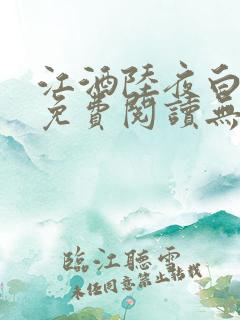 江酒陸夜白
免費閱讀無
臨江聽雲
未经同意禁止转载